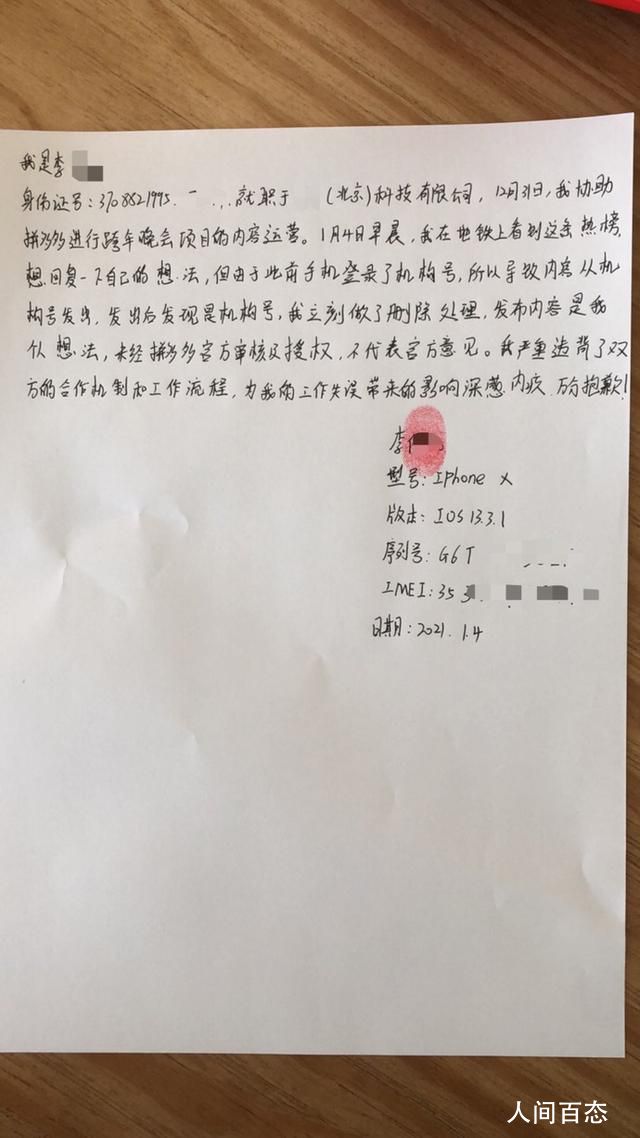 我是李
身份证号:3708821995. 就职于 (北京)科技有限公司,12月31日,我协助
拼多多进行跨年晚会项目的内容运营。1月4日早晨,我在地铁上看到这条热榜,
想回复一下自己的想法,但由于此前手机登录了机构号,所以导致内容从机
构号发出,发出后发现是机构号,我立刻做了删除处理,发布内容是我
个人想法,未经拼多多官方审核及授权,不代表官方意见。我严重违背了双
方的合作机制和工作流程,为我的工作失误带来的影响深感内疚 万分抱歉!
李
型号:Iphone X
版本:IOS 13.3.1
序列号:G6T
IMEI:353
日期:2021.1.4
人间百态